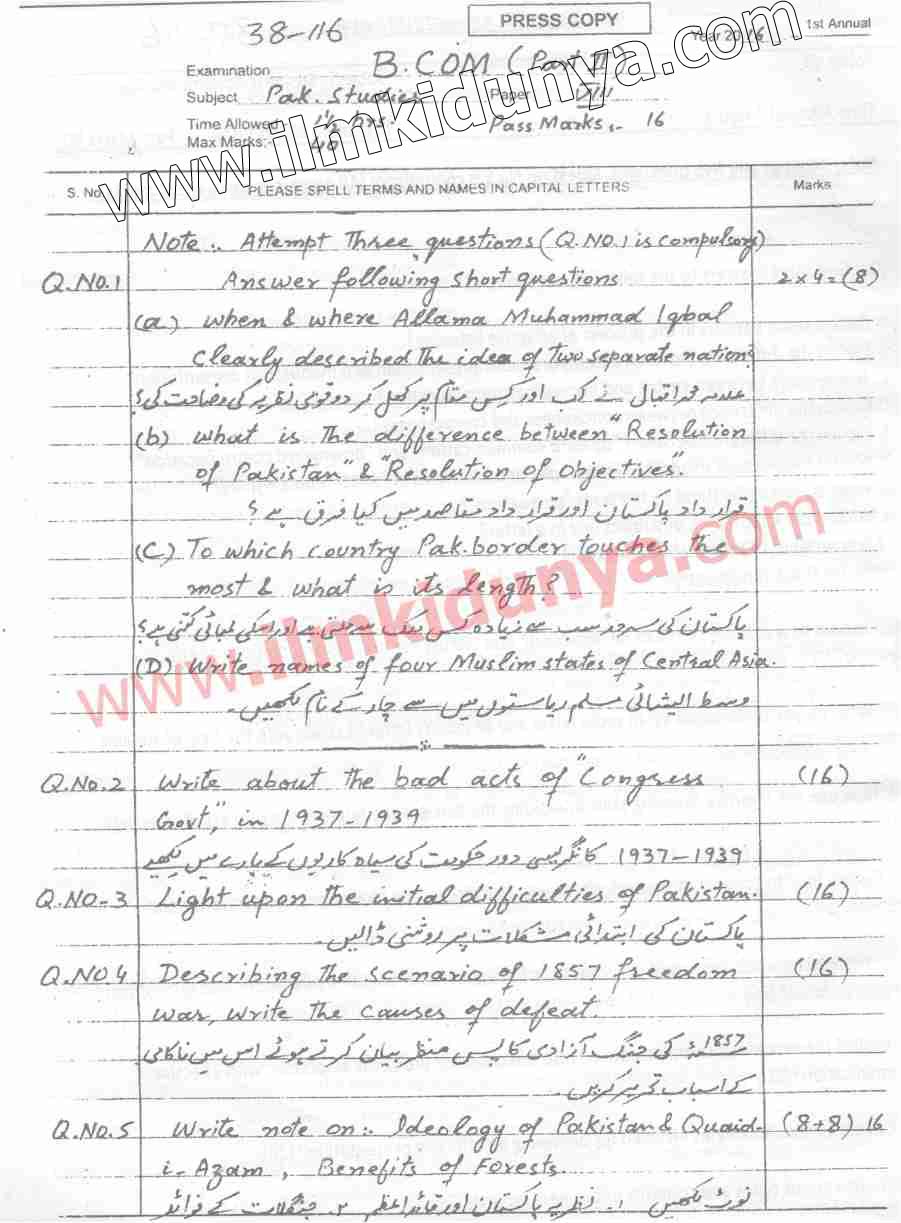 PRESS COPY
38-116
Year 2016 1st Annual
Examination B.COM (Part II)
Subject Pak. Studies Paper VIII
Time Allowed:- 1½ hrs. Pass Marks:- 16
Max Marks:- 40
www.ilmkidunya.com
S. No. PLEASE SPELL TERMS AND NAMES IN CAPITAL LETTERS Marks
Note:. Attempt Three questions (Q.NO.1 is compulsory)
Q.NO.1 Answer following short questions 2×4=(8)
(a) when & where Allama Muhammad Iqbal
clearly described the idea of two separate nation?
علامہ محمد اقبال نے کب اور کس مقام پر کھل کر دو قومی نظریہ کی وضاحت کی؟
(b) what is the difference between "Resolution
of Pakistan" & "Resolution of Objectives".
قرار داد پاکستان اور قرار داد مقاصد میں کیا فرق ہے؟
(C) To which country Pak.border touches the
most & what is its length?
پاکستان کی سرحد سب سے زیادہ کس ملک سے ملتی ہے اور اسکی لمبائی کتنی ہے؟
(D) Write names of four Muslim states of Central Asia.
وسط ایشیائی مسلم ریاستوں میں سے چار کے نام لکھیں۔
www.ilmkidunya.com
Q.NO.2 Write about the bad acts of "Congress (16)
Govt", in 1937-1939
1937-1939 کانگریسی دور حکومت کی سیاہ کاریوں کے بارے میں لکھیے
Q.NO-3 Light upon the initial difficulties of Pakistan. (16)
پاکستان کی ابتدائی مشکلات پر روشنی ڈالیں۔
Q.NO.4 Describing the scenario of 1857 freedom (16)
war, write the causes of defeat.
1857ء کی جنگ آزادی کا پس منظر بیان کرتے ہوئے اس میں ناکامی
کے اسباب تحریر کریں۔
Q.NO.5 Write note on:. Ideology of Pakistan & Quaid- (8+8) 16
i-Azam, Benefits of Forests.
نوٹ لکھیں ۱۔ نظریہ پاکستان اور قائداعظم ۲۔ جنگلات کے فوائد